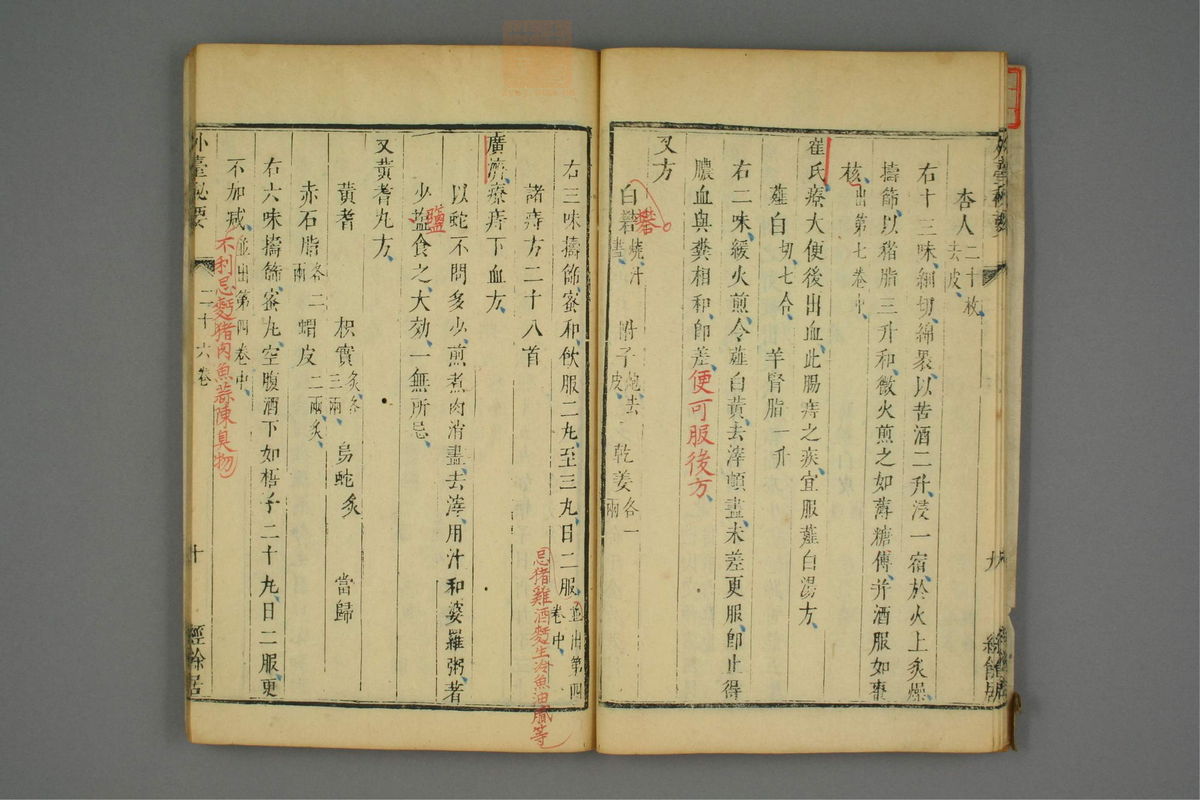 杏人二十枚去皮
右十三味細切綿裹以苦酒二升浸一宿於火上炙燥
擣篩以豬脂三升和微火煎之如薄糖傅并酒服如棗
核出第七卷中
崔氏療大便後出血此腸痔之疾宜服薤白湯方
薤白切七合 羊腎脂一升
右二味緩火煎令薤白黃去滓頓盡未差更服卽止得
膿血與糞相和卽差便可服後方
又方
白礬燒汁盡 附子炮去皮 乾姜各一兩
礬
外臺秘要 九 經餘居
右三味擣篩蜜和飲服二丸至三丸日二服並出第四卷中
忌猪雞酒麪生冷魚油膩等
諸痔方二十八首
廣濟療痔下血方
以蛇不問多少煎煮肉消盡去滓用汁和婆羅粥著
少盐食之大効一無所忌
鹽
又黃耆丸方
黃耆 枳實炙各三兩 烏蛇炙 當歸
赤石脂各二兩 蝟皮二兩炙
右六味擣篩蜜丸空腹酒下如梧子二十丸日二服更
不加減並出第四卷中
不利忌麪猪肉魚蒜陳臭物
外臺秘要 二十六卷 十 經餘居